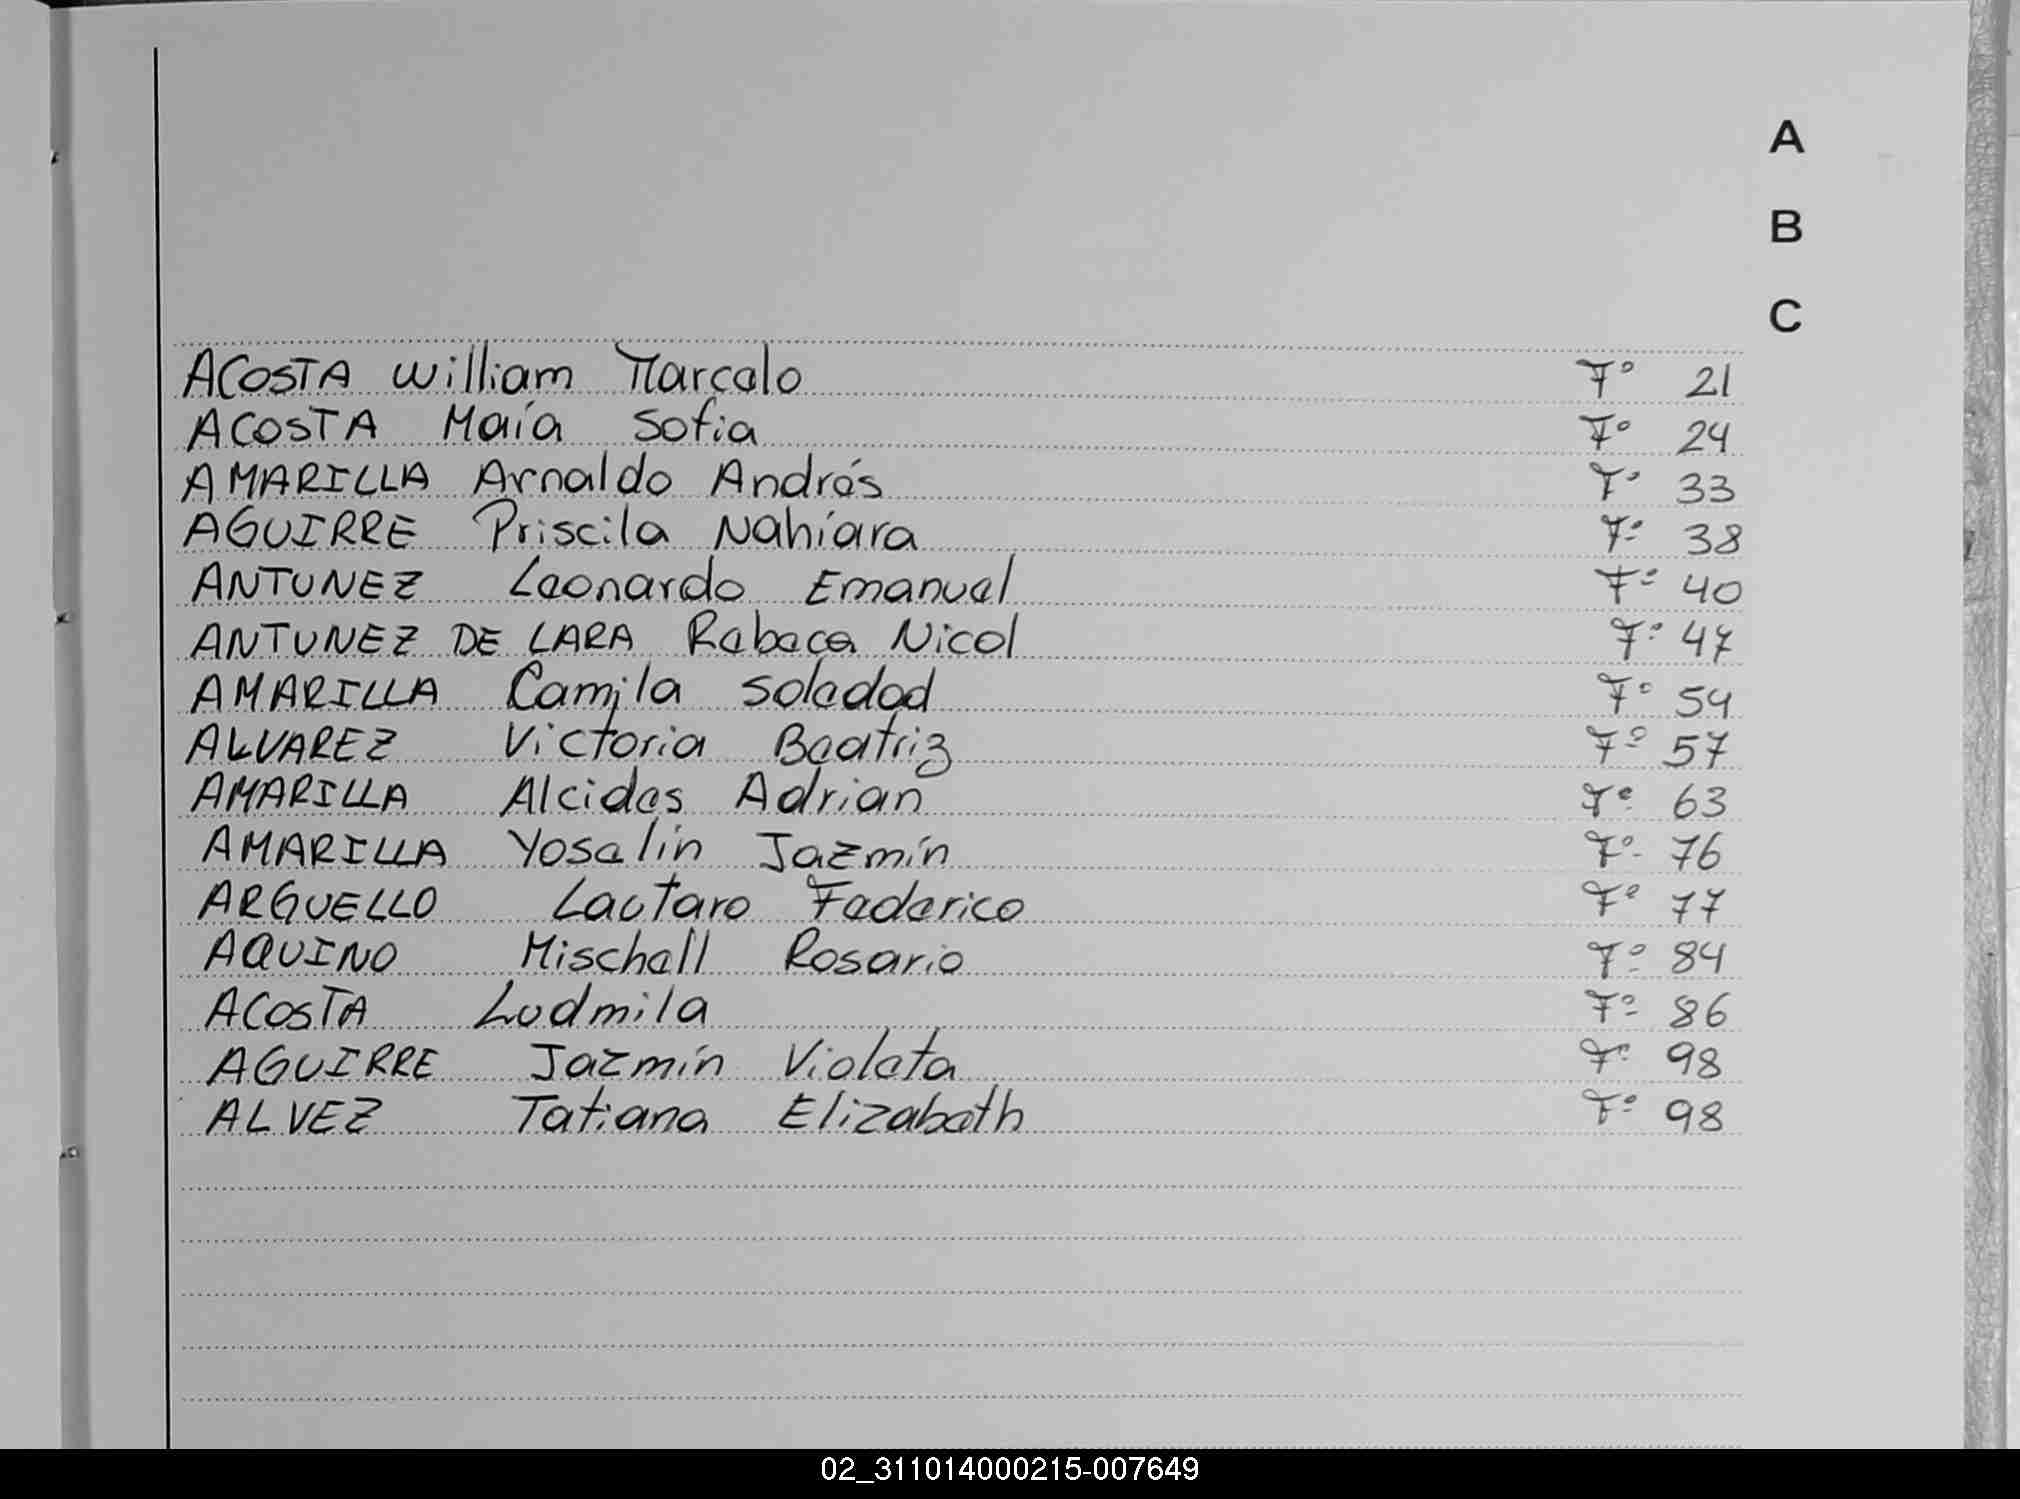 A
B
C
ACOSTA William Marcelo F° 21
ACOSTA Maía Sofia F° 24
AMARILLA Arnaldo Andrés F° 33
AGUIRRE Priscila Nahiara F° 38
ANTUNEZ Leonardo Emanuel F° 40
ANTUNEZ DE LARA Rebeca Nicol F° 47
AMARILLA Camila Soledad F° 54
ALVAREZ Victoria Beatriz F° 57
AMARILLA Alcides Adrian F° 63
AMARILLA Yoselin Jazmín F° 76
ARGUELLO Lautaro Federico F° 77
AQUINO Mischell Rosario F° 84
ACOSTA Ludmila F° 86
AGUIRRE Jazmín Violeta F° 98
ALVEZ Tatiana Elizabeth F° 98
02_311014000215-007649